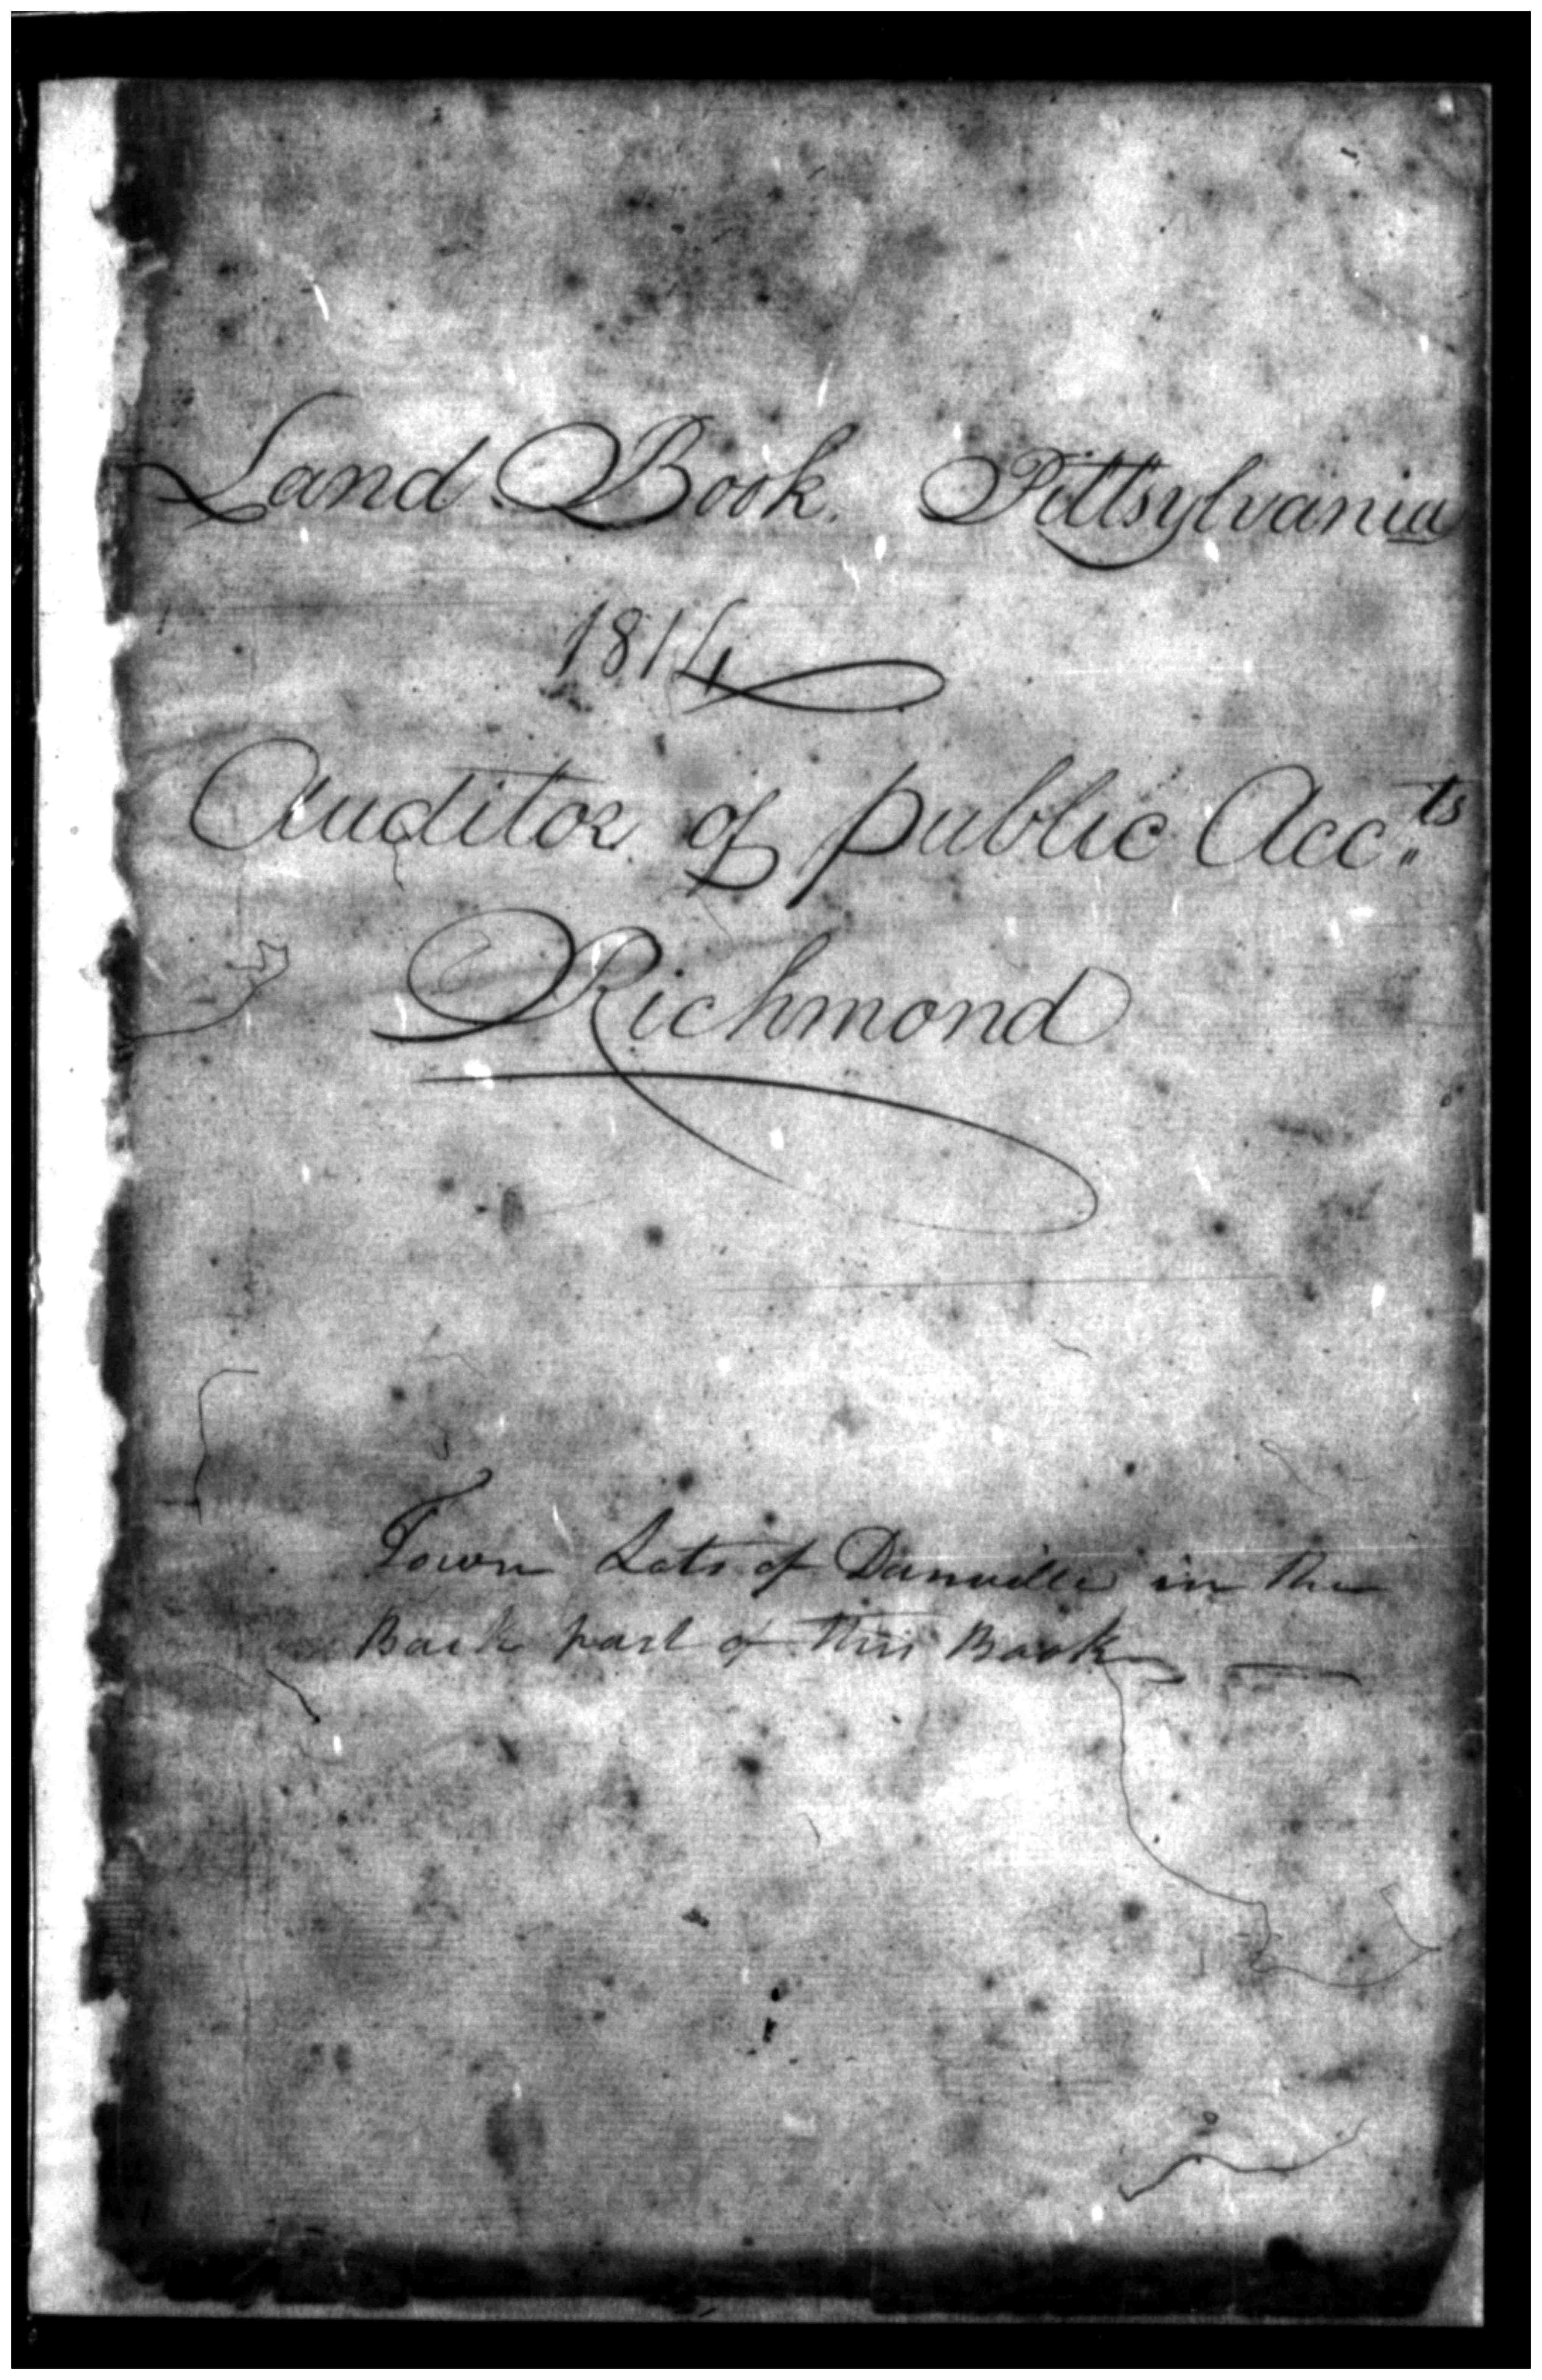 Land Book. Pittsylvania
1814
Auditor of public Acc.ts
Richmond
Town Lots of Danville in the
Back part of this Book